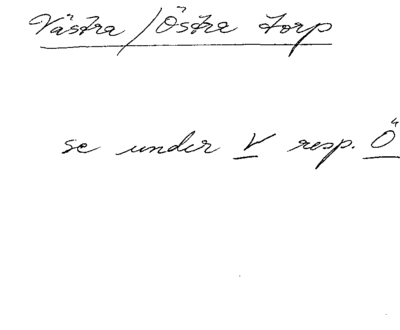 Västra / Östra torp
se under V resp. Ö